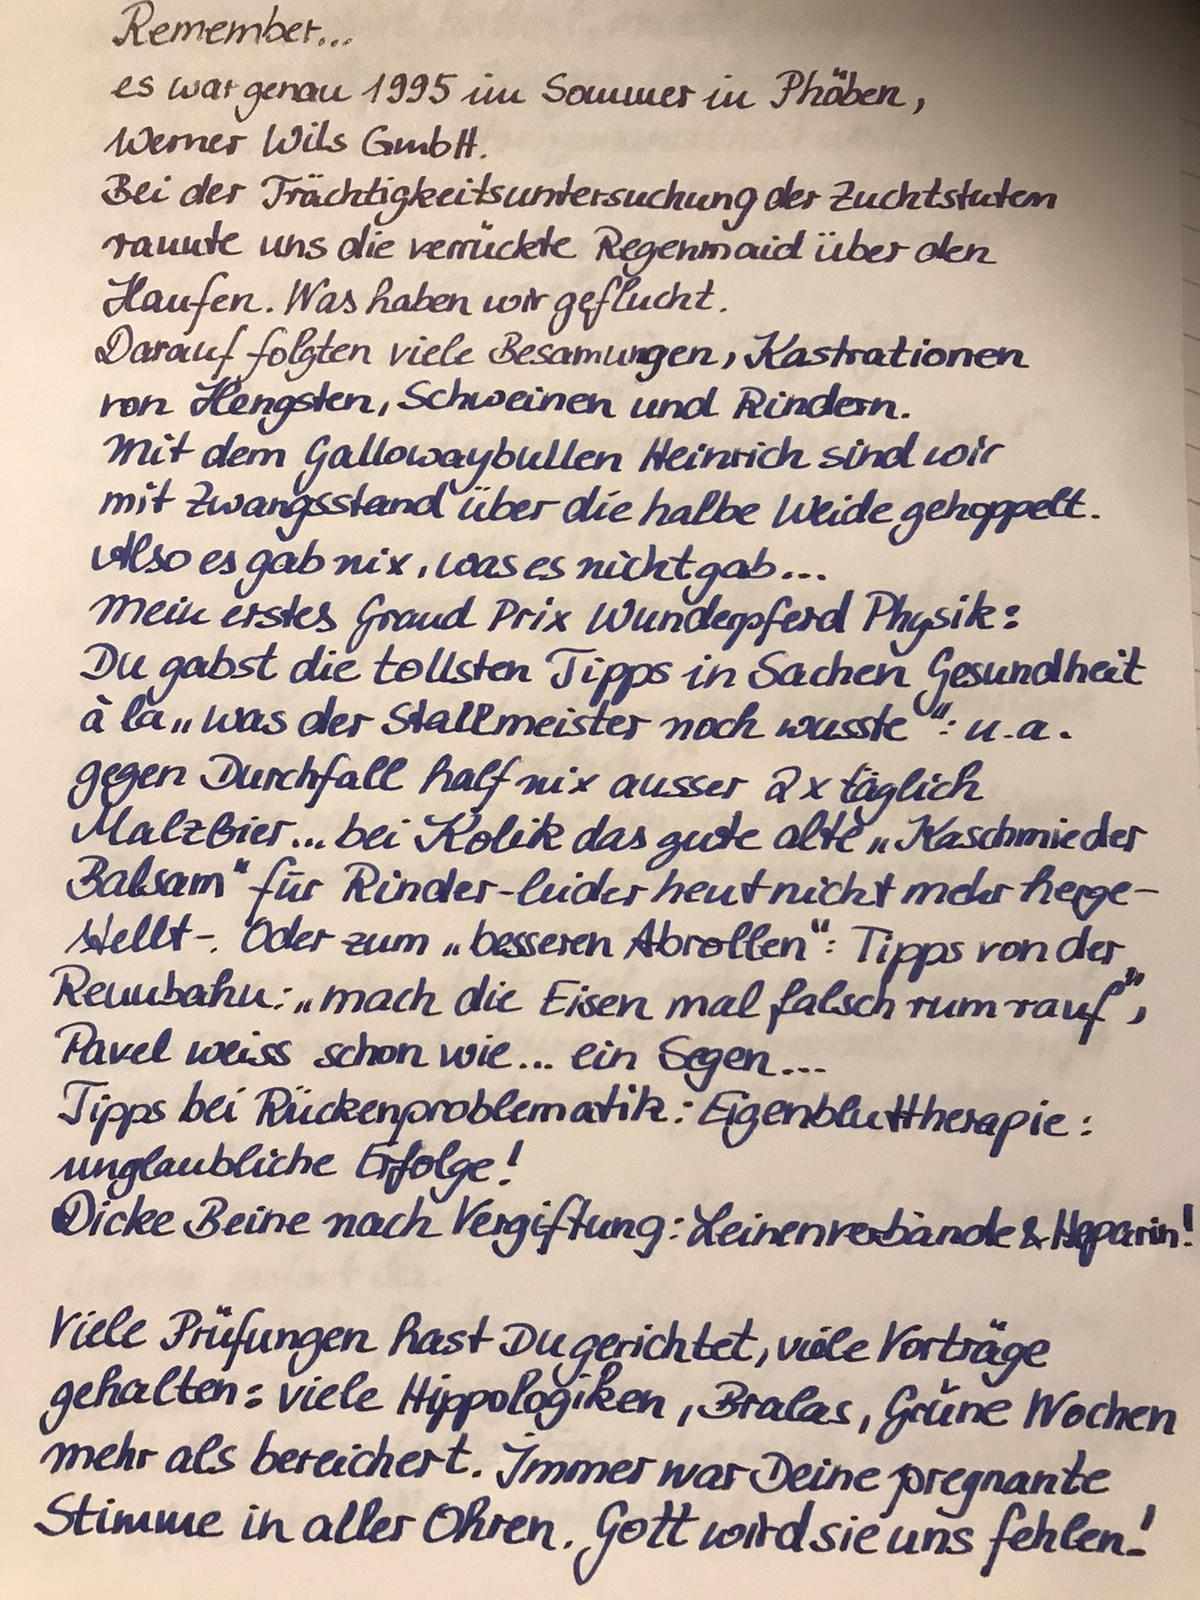 Remember...
es war genau 1995 im Sommer in Phöben,
Werner Wils GmbH.
Bei der Trächtigkeitsuntersuchung der Zuchtstuten
rannte uns die verrückte Regenmaid über den
Haufen. Was haben wir geflucht.
Darauf folgten viele Besamungen, Kastrationen
von Hengsten, Schweinen und Rindern.
Mit dem Gallowaybullen Heinrich sind wir
mit Zwangsstand über die halbe Weide gehoppelt.
Also es gab nix, was es nicht gab...
Mein erstes Grand Prix Wunderpferd Physik:
Du gabst die tollsten Tipps in Sachen Gesundheit
à la „was der Stallmeister noch wusste“: u.a.
gegen Durchfall half nix ausser 2x täglich
Malzbier... bei Kolik das gute alte „Kaschmieder
Balsam“ für Rinder - leider heut nicht mehr herge-
stellt-. Oder zum „besseren Abrollen“: Tipps von der
Rennbahn: „mach die Eisen mal falsch rum rauf“,
Pavel weiss schon wie... ein Segen...
Tipps bei Rückenproblematik: Eigenbluttherapie:
unglaubliche Erfolge!
Dicke Beine nach Vergiftung: Leinenverbände & Heparin!
Viele Prüfungen hast Du gerichtet, viele Vorträge
gehalten: viele Hippologiken, Bralas, Grüne Wochen
mehr als bereichert. Immer war Deine pregnante
Stimme in aller Ohren. Gott wird sie uns fehlen!